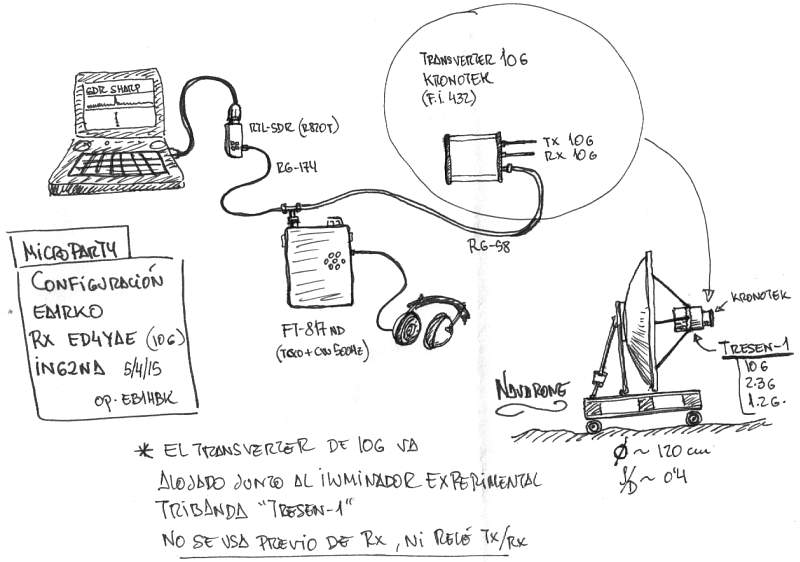 TRANSVERTER 10G
KRONOTEK
(F.i. 432)
SDR SHARP
RTL-SDR (R820T)
TX 10G
RX 10G
RG-174
RG-58
MICROPARTY
CONFIGURACIÓN
EA1RKO
RX ED4YAE (10G)
IN62NA 5/4/15
OP. EB1HBK
FT-817ND
(TCXO + CW 500HZ)
KRONOTEK
TRESEN-1
10G
2.3G
1.2G.
NAVARONE
Ø ~ 120 cm
f/D ~ 0'4
* EL TRANSVERTER DE 10G VA
ALOJADO JUNTO AL ILUMINADOR EXPERIMENTAL
TRIBANDA "TRESEN-1"
NO SE USA PREVIO DE RX, NI RELÉ TX/RX